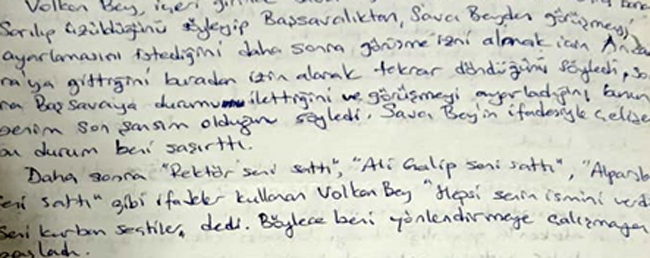 Volkan Bey, içeri
Sarılıp üzüldüğünü söyleyip Başsavcılıktan, Savcı Beyden görüşmeyi
ayarlamasını istediğini daha sonra görüşme izni almak için Anka
ra'ya gittiğini buradan izin alarak tekrar döndüğünü söyledi, so
na Başsavcıya durumu ilettiğini ve görüşmeyi ayarladığını bunun
benim son şansım olduğun söyledi. Savcı Bey'in ifadesiyle çelişe
bu durum beni şaşırttı.
Daha sonra "Rektör seni sattı", "Ali Galip seni sattı", "Alparsl
seni sattı" gibi ifadeler kullanan Volkan Bey "Hepsi senin ismini verdi
Seni kurban seçtiler, dedi. Böylece beni yönlendirmeye çalışmaya
başladı.